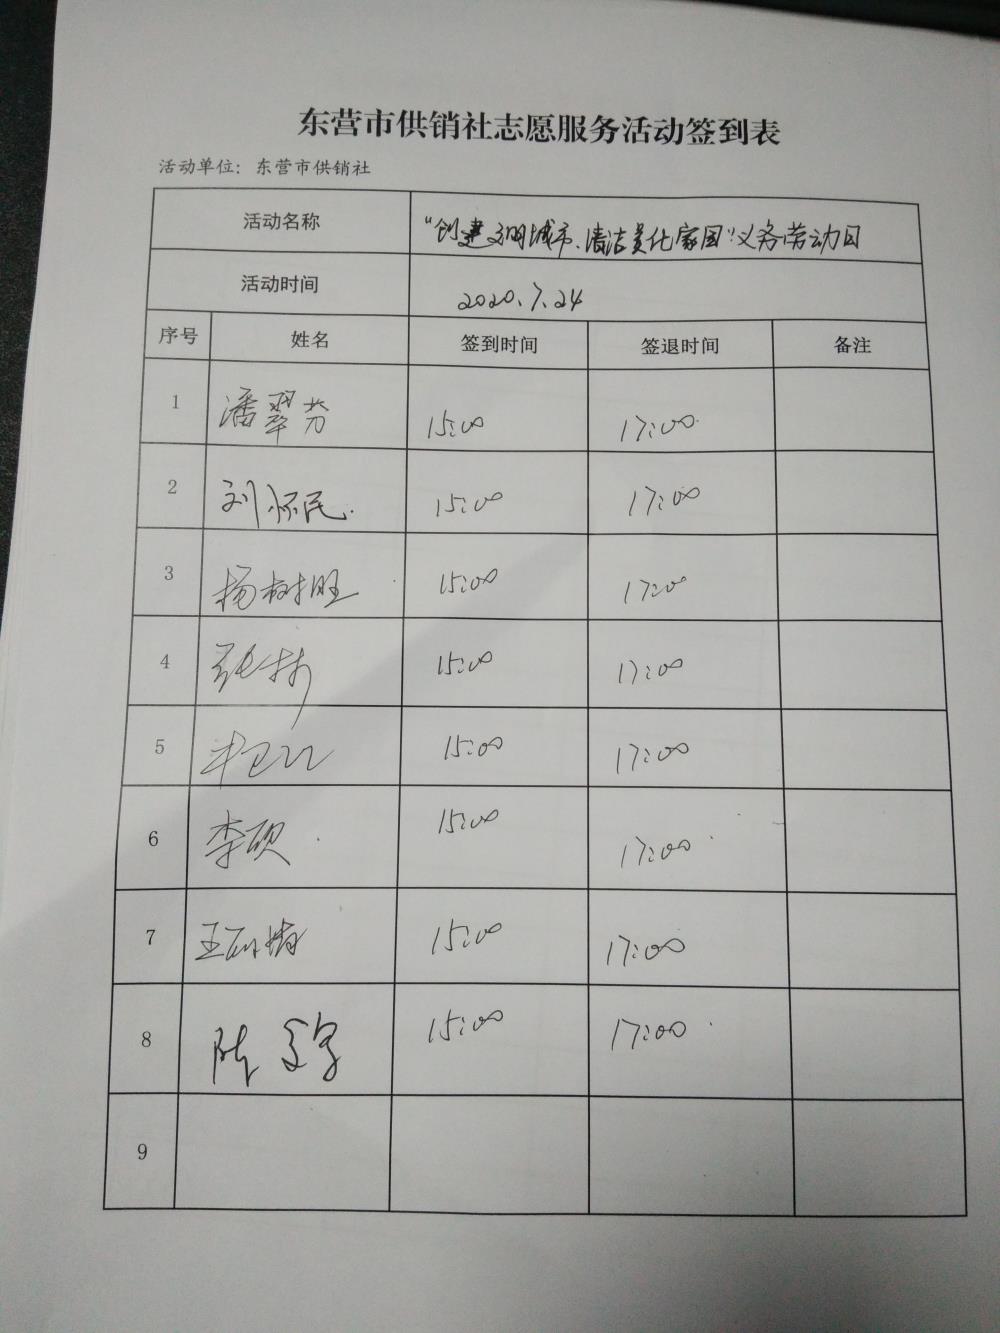 东营市供销社志愿服务活动签到表
活动单位：东营市供销社
活动名称 “创建文明城市、清洁美化家园”义务劳动日
活动时间 2020.7.24
序号 姓名 签到时间 签退时间 备注
1 潘翠芬 15:00 17:00
2 刘怀民 15:00 17:00
3 杨树旺 15:00 17:00
4 张 15:00 17:00
5 15:00 17:00
6 李硕 15:00 17:00
7 王 15:00 17:00
8 陈 15:00 17:00
9